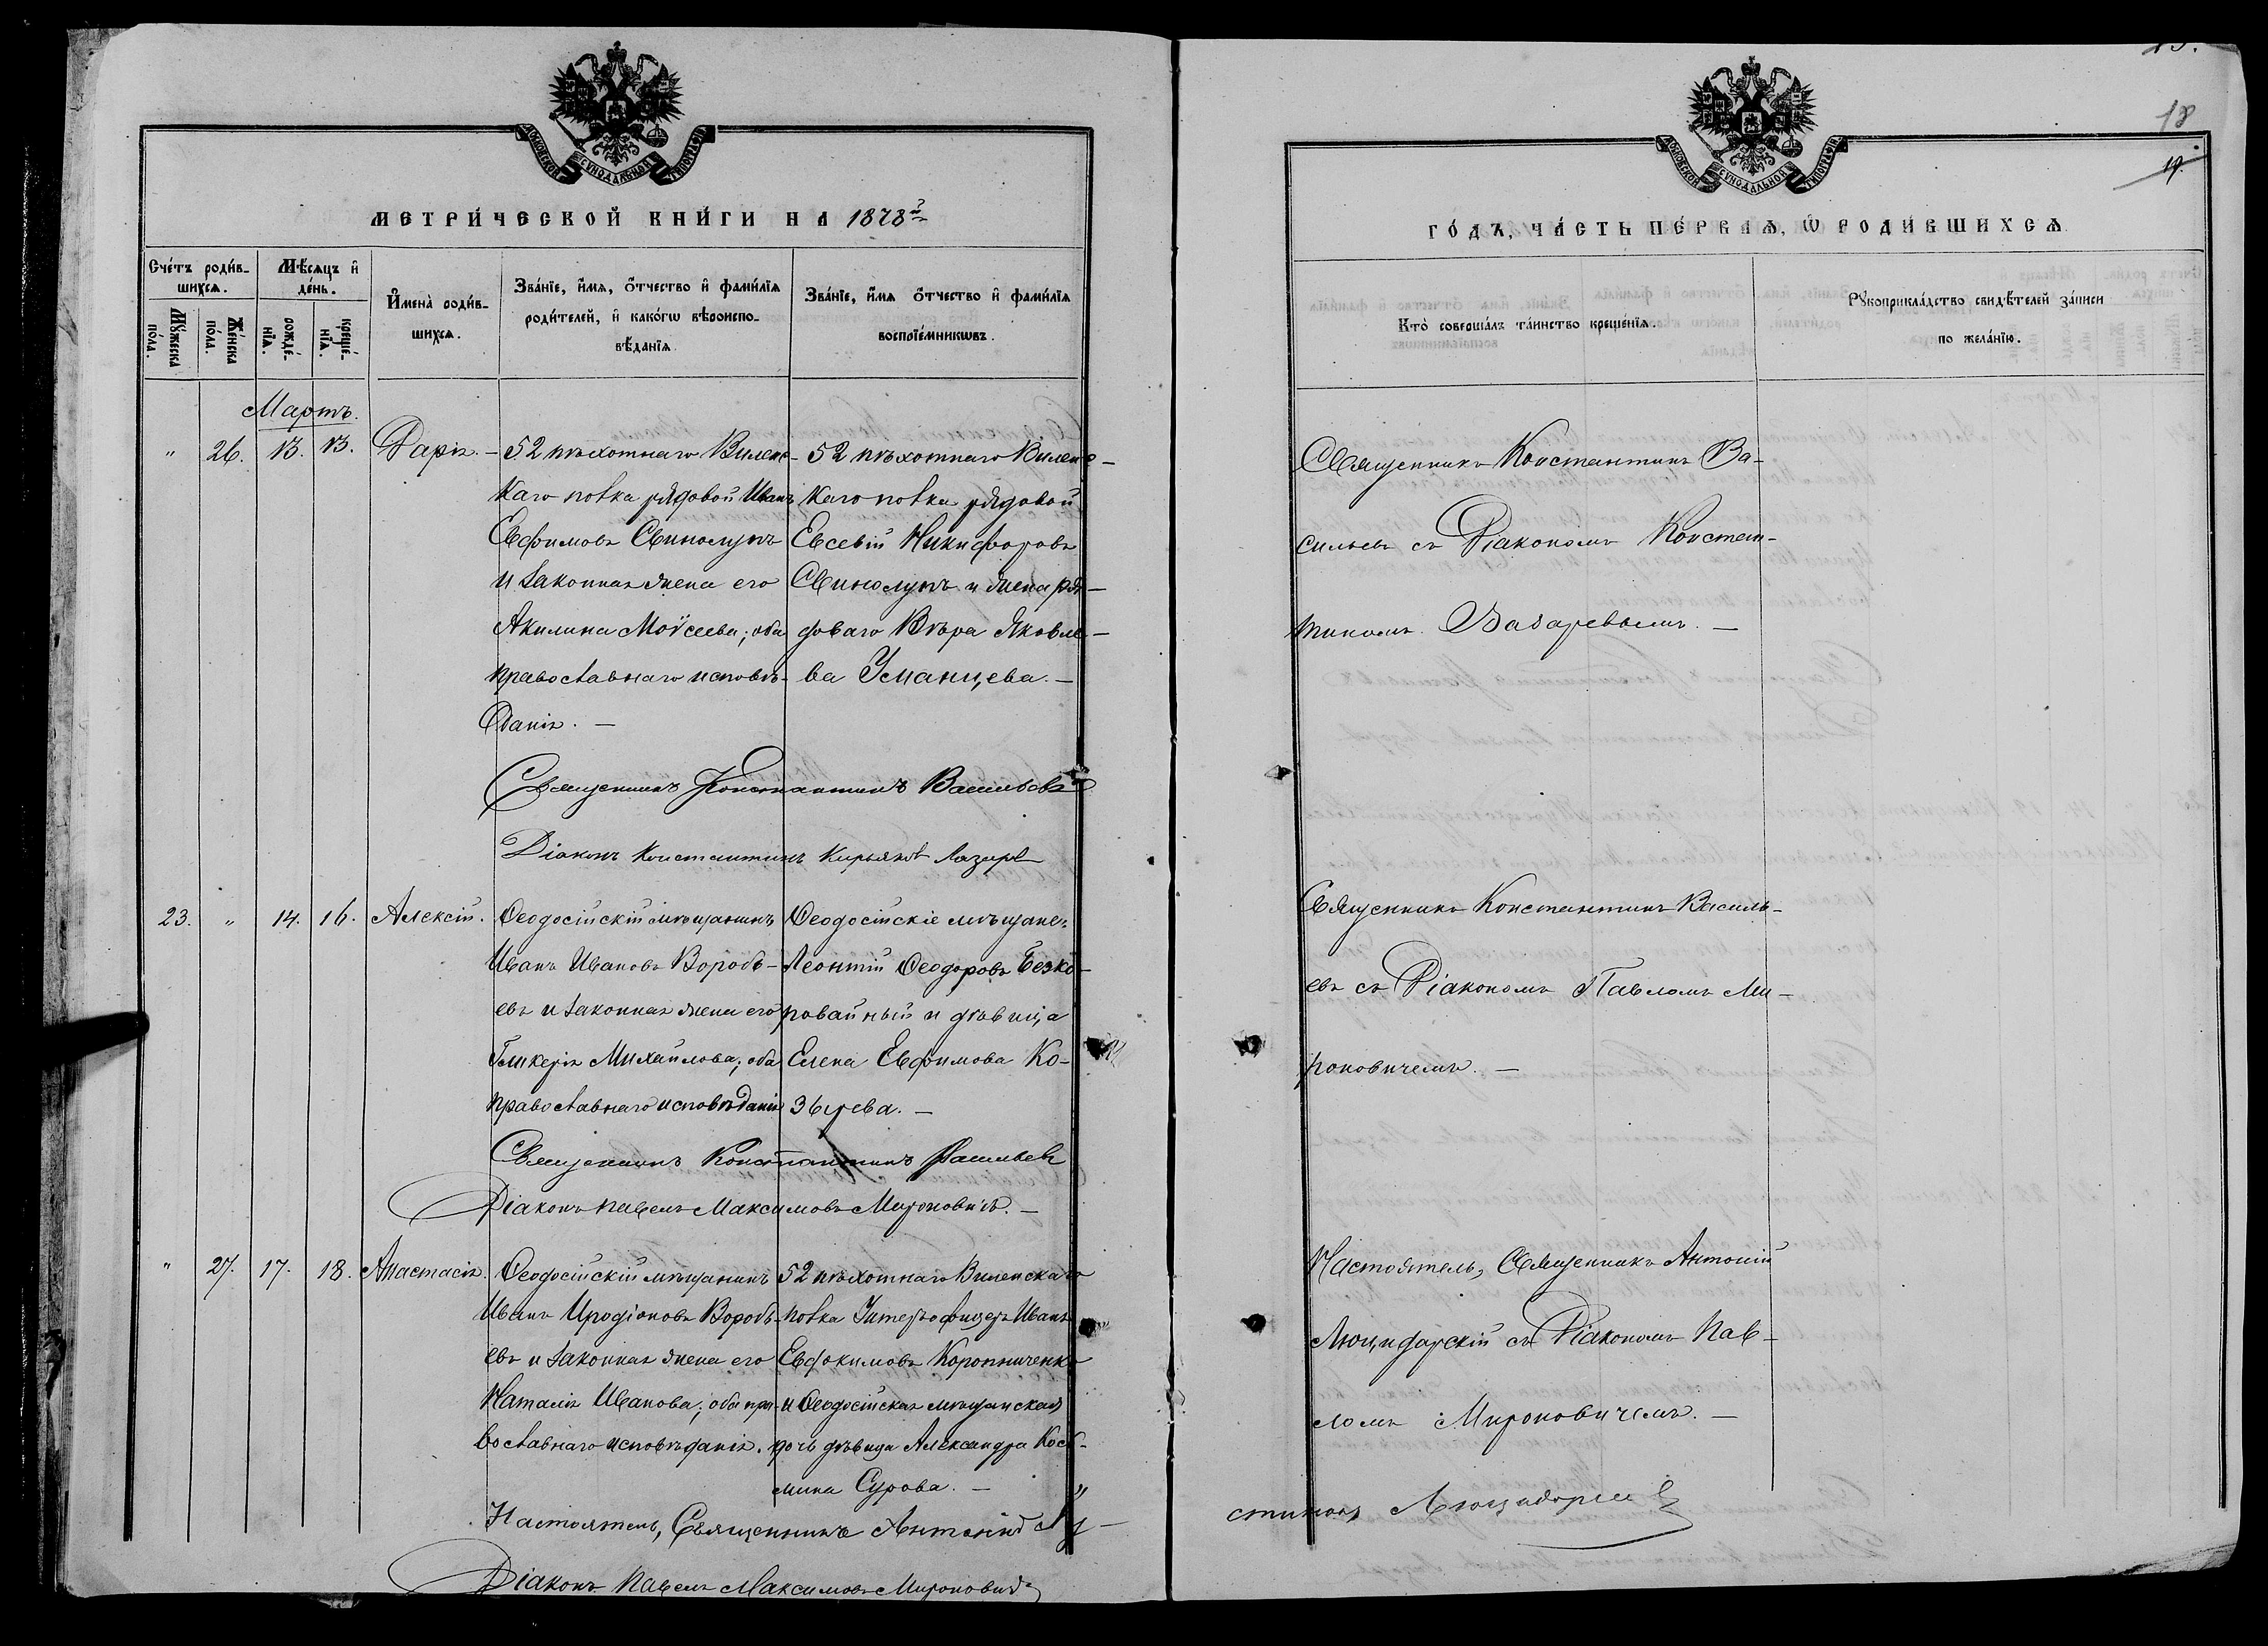 МОСКОВСКОЙ СѴНОДАЛЬНОЙ ТИПОГРАФІИ
МЕТРИ́ЧЕСКОЙ КНИ́ГИ НА 1878й
Сче́тъ роди́в-
шихсѧ.
Мѣ́сѧцъ и҆
де́нь.
Мꙋ́жеска
по́ла.
Же́нска
по́ла.
рожде́-
нїѧ.
креще́-
нїѧ.
И҆мена̀ роди́в-
шихсѧ.
Зва́нїе, и҆́мѧ, ѻ҆́тчество и҆ фами́лїѧ
роди́телей, и҆ како́гѡ вѣроиспо-
вѣ́данїѧ
Зва́нїе, и҆́мѧ ѻ҆́тчество и҆ фами́лїѧ
воспрїе́мникѡвъ.
Мартъ.
" 26. 13. 13. Дарія. –
52 пѣхотнаго Виленс-
каго полка рядовой Иванъ
Евфимовъ Свинолупъ
и законная жена его
Акилина Моѵсеева; оба
православнаго исповѣ-
данія. –
52 пѣхотнаго Виленс-
каго полка рядовой
Евсевій Никифоровъ
Свинолупъ и жена ря-
доваго Вѣра Яковле-
ва Уманцева. –
Священникъ Константинъ Васильевъ
Діаконъ Константинъ Кирьяковъ Лазаревъ
23. " 14. 16. Алексій.
Ѳеодосійскій мѣщанинъ
Иванъ Ивановъ Воробь-
евъ и законная жена его
Гликерія Михайлова; оба
православнаго исповѣданія
Ѳеодосійскіе мѣщане:
Леонтій Ѳеодоровъ Безко-
ровайный и дѣвица
Елена Евфимова Ко-
зырева. –
Священникъ Константинъ Васильевъ
Діаконъ Павелъ Максимовъ Мироновичъ. –
" 27. 17. 18. Анастасія.
Ѳеодосійскій мѣщанинъ
Иванъ Иродіоновъ Воробь-
евъ и законная жена его
Наталія Иванова; оба пра-
вославнаго исповѣданія.
52 пѣхотнаго Виленскаго
полка Унтеръ офицеръ Иванъ
Евдокимовъ
и Ѳеодосійская мѣщанская
дочь дѣвица Александра Кось-
мина Сурова. –
Настоятель, Священникъ Антоній
Діаконъ Павелъ Максимовъ Мироновичъ
18
19.
МОСКОВСКОЙ СѴНОДАЛЬНОЙ ТИПОГРАФІИ
ГО́ДЪ, ЧА́СТЬ ПЕ́РВАѦ, Ѡ҆ РОДИ́ВШИХСѦ
Кто̀ соверша́лъ та́инство креще́нїѧ.
Рꙋкоприкла́дство свидѣ́телей за́писи
по жела́нїю.
Священникъ Константинъ Ва-
сильевъ съ Діакономъ Констан-
тиномъ Лазаревымъ. –
Священникъ Константинъ Василь-
евъ съ Діакономъ Павломъ Ми-
роновичемъ. –
Настоятель, Священникъ Антоній
Люцидарскій съ Діакономъ Пав-
ломъ Мироновичемъ. –